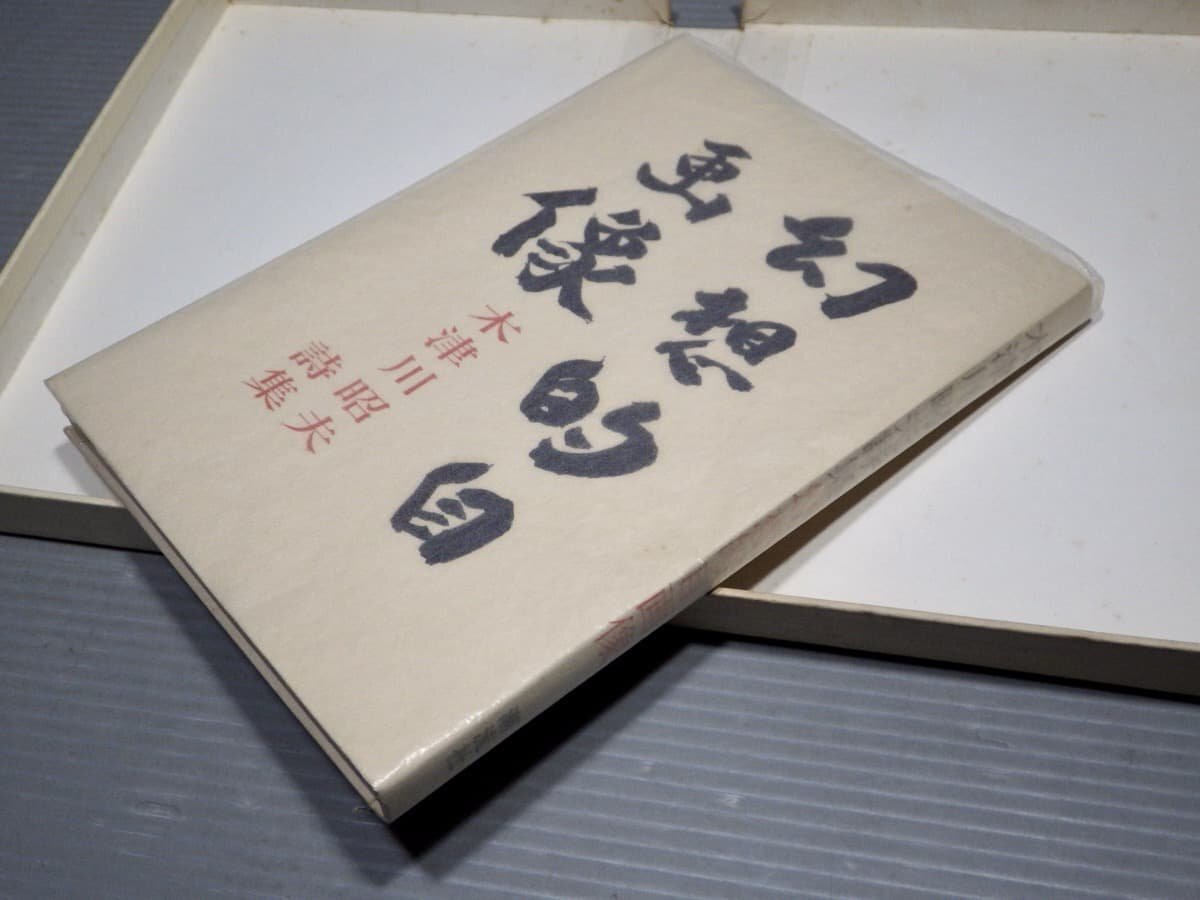 幻想的自
画像
木津川昭夫
詩集
画像